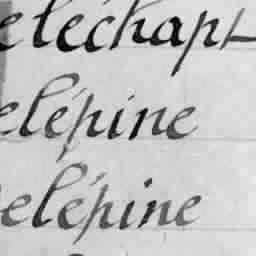 eléchapt
elépine
elépine